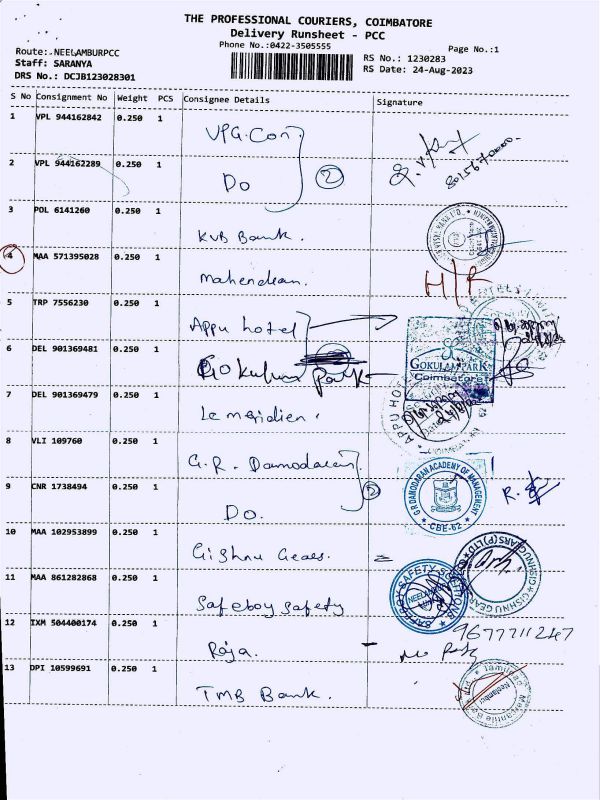 THE PROFESSIONAL COURIERS, COIMBATORE
Delivery Runsheet - PCC
Phone No.:0422-3505555
Page No.:1
Route: NEELAMBURPCC
Staff: SARANYA
DRS No.: DCJB123028301
RS No.: 1230283
RS Date: 24-Aug-2023
S No Consignment No Weight PCS Consignee Details Signature
1 VPL 944162842 0.250 1 VPG.Con
2 VPL 944162289 0.250 1 Do 2
3 POL 6141260 0.250 1 KVB Bank.
4 MAA 571395028 0.250 1 Mahendran. H/R
5 TRP 7556230 0.250 1 Appu hotel
6 DEL 901369481 0.250 1 Gokulam Park GOKULAM PARK Coimbatore
7 DEL 901369479 0.250 1 Le meridien. APPU HOT
8 VLI 109760 0.250 1 G.R. Damodaran
9 CNR 1738494 0.250 1 Do. 2 G R DAMODARAN ACADEMY OF MANAGEMENT CBE-62
10 MAA 102953899 0.250 1 Gishnu Gears. GISHNU GEARS (P) LTD
11 MAA 861282868 0.250 1 Safeboy Safety SAFEBOY SAFETY SOLUTIONS NEELAMBUR
12 IXM 504400174 0.250 1 Raja. 9677711247
13 DPI 10599691 0.250 1 TMB Bank. Tamilnad Mercantile Neelambur